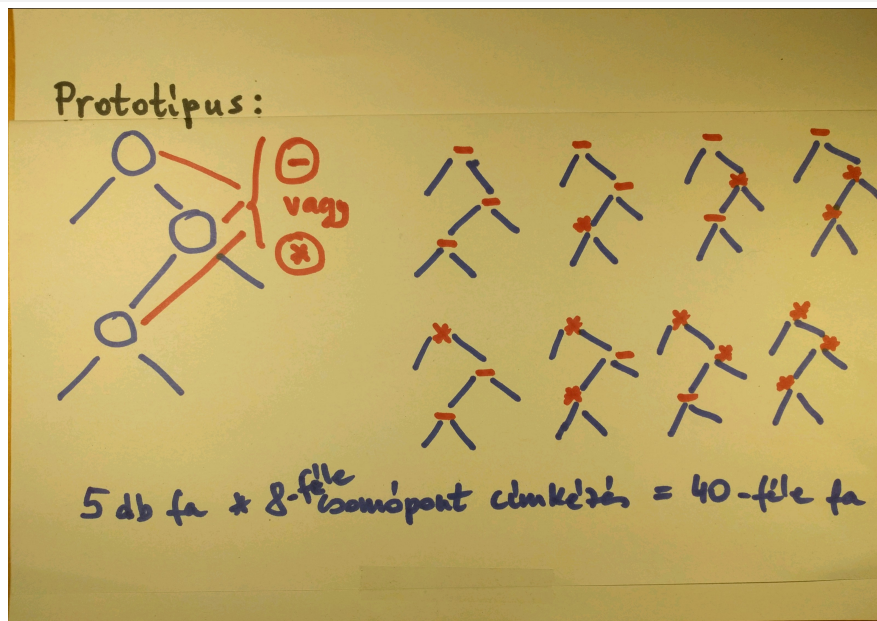 Prototípus:
−
vagy
*
5 db fa * 8-féle csomópont címkézés = 40-féle fa